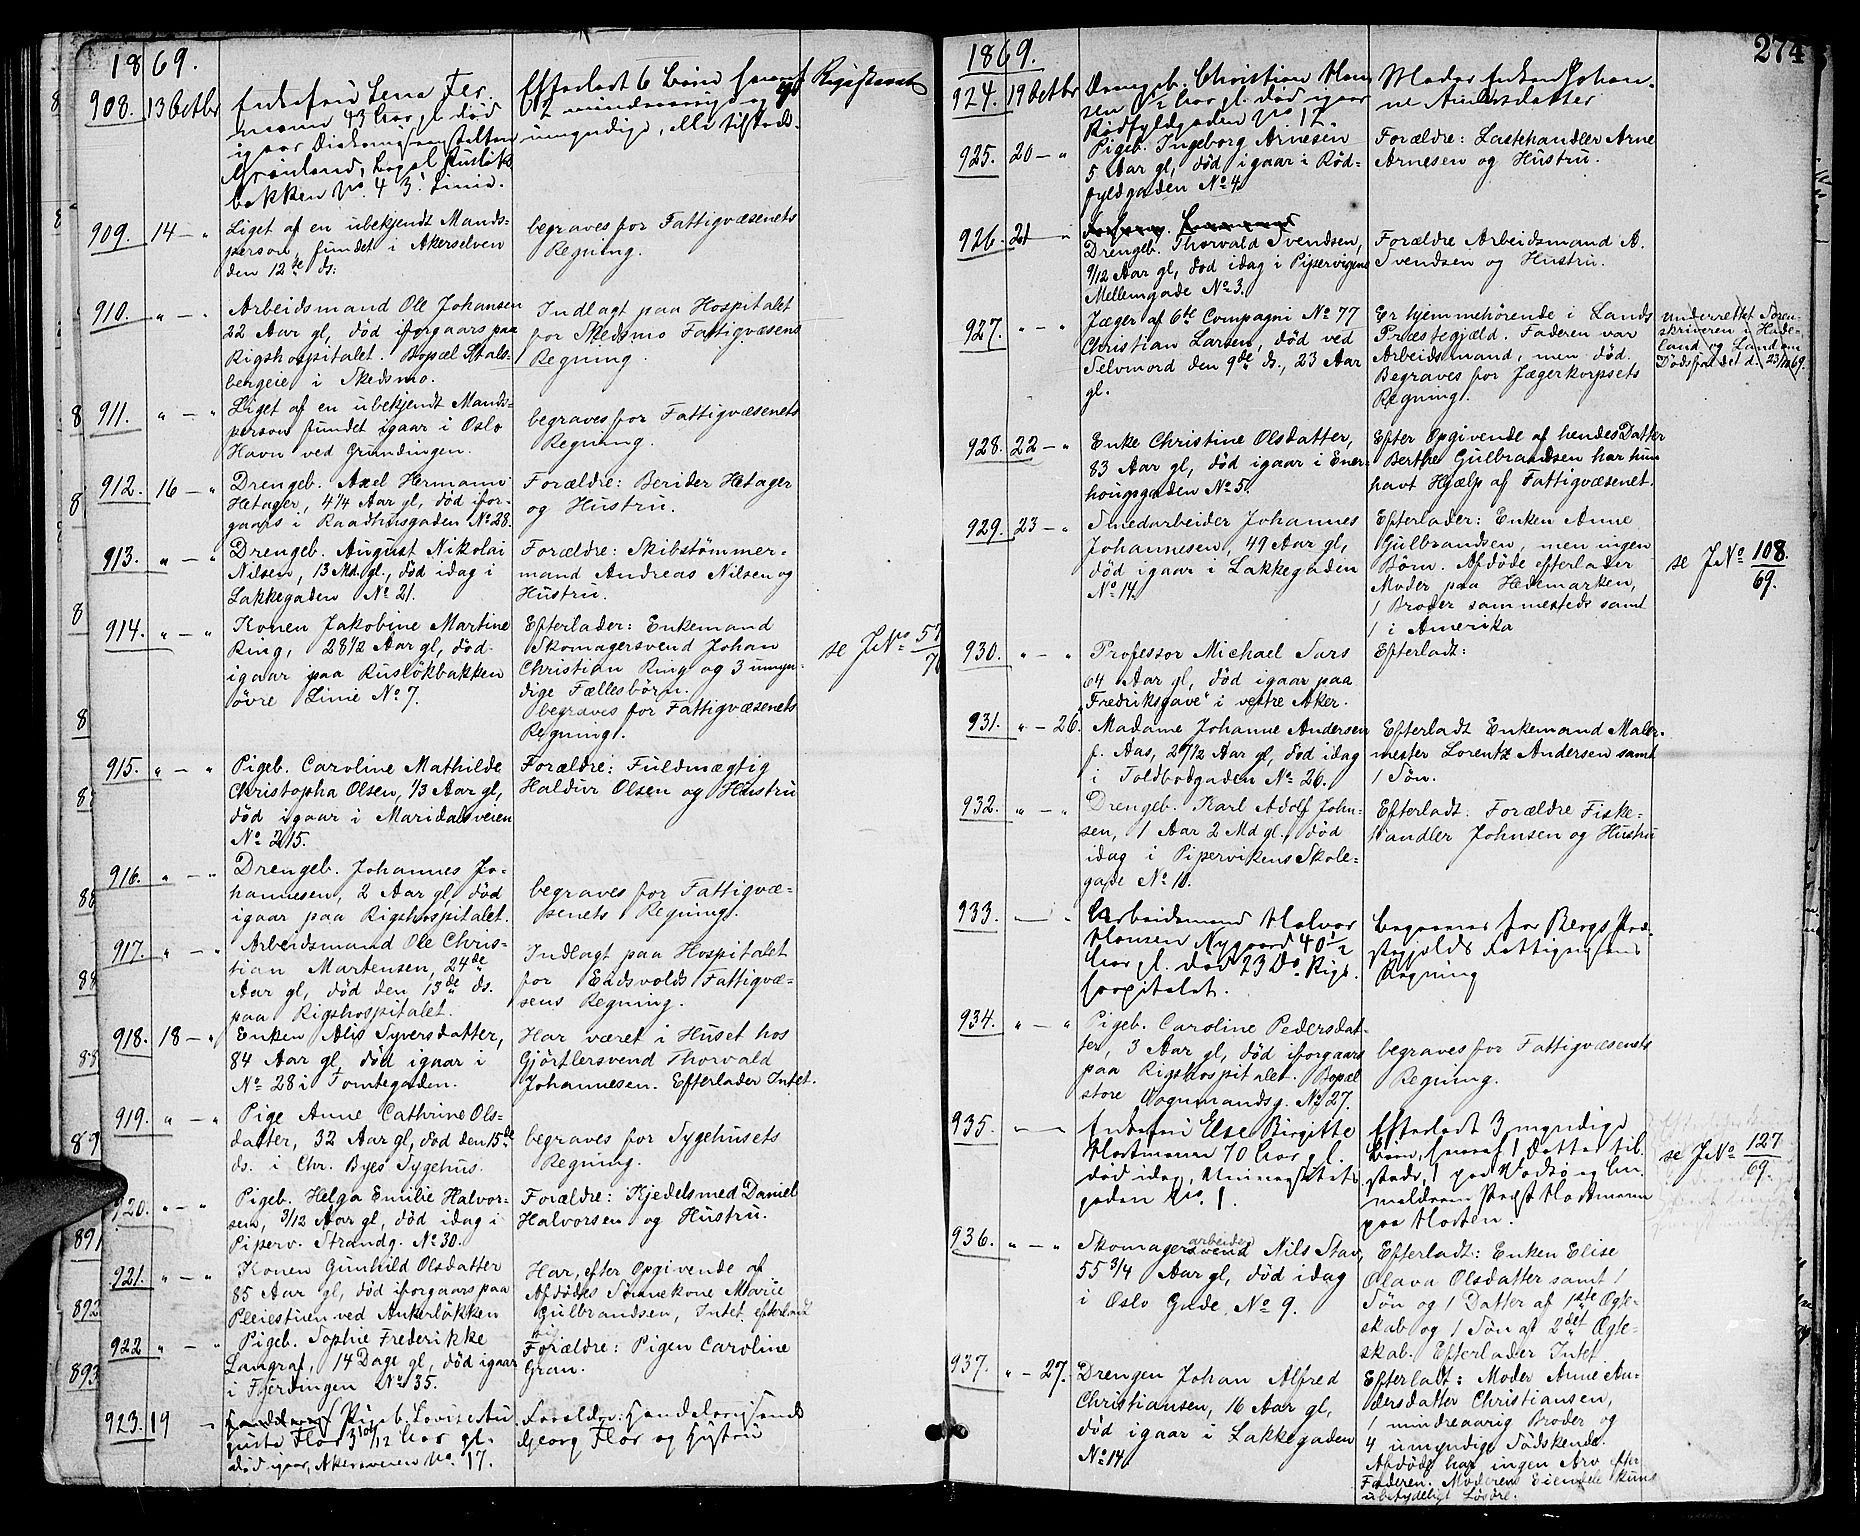 1869.
908. 13 Octbr
Enkefru Lena Fer-
mann 43 Aar gl. død
igaar Diakonissanstalten
Grønland, Bopæl Ruseløk
bakken No. 4 3. Linie.
Efterladt 6 Børn hvoraf
2 mindreaarige og 4
umyndige, alle tilstede.
Registreret
909. 14 – "
Liget af en ubekjendt Mands-
person, fundet i Akerselven
den 12te ds:
begraves for Fattigvæsenets
Regning.
910. " – "
Arbeidsmand Ole Johansen
22 Aar gl, død iforgaars paa
Rigshospitalet. Bopæl Stals-
bergeie i Skedsmo.
Indlagt paa Hospitalet
for Skedsmo Fattigvæsens
Regning.
911. " – "
Liget af en ubekjendt Mands-
person fundet igaar i Oslo
Havn ved Grundingen.
begraves for Fattigvæsenets
Regning.
912. 16 – "
Drengeb. Axel Hermann
Hetager, 4 1/4 Aar gl, død ifor-
gaars i Raadhusgaden No 28.
Forældre: Berider Hetager
og Hustru.
913. " – "
Drengeb. August Nikolai
Nilsen, 13 Md. gl., død idag i
Lakkegaden No 21.
Forældre: Skibstømmer-
mand Andreas Nilsen og
Hustru.
914. " – "
Konen Jakobine Martine
Ring, 28 1/2 Aar gl, død
igaar paa Rusløkbakken
øvre Linie No 7.
Efterlader: Enkemand
Skomagersvend Johan
Christian Ring og 3 umyn-
dige Fællesbørn.
begraves for Fattigvæsenets
Regning.
se JNo 57
70
915. " – "
Pigeb. Caroline Mathilde
Christopha Olsen, 1/3 Aar gl,
død igaar i Maridalsveien
No 215.
Forældre: Fuldmægtig
Haldur Olsen og Hustru
916. " – "
Drengeb. Johannes Jo-
hannesen, 2 Aar gl, død
igaar paa Rigshospitalet.
begraves for Fattigvæ-
senets Regning.
917. " – "
Arbeidsmand Ole Chris-
tian Martensen, 24de
Aar gl, død den 15de ds.
paa Rigshospitalet.
Indlagt paa Hospitalet
for Eidsvolds Fattigvæ-
sens Regning.
918. 18 – "
Enken Alis Syversdatter,
84 Aar gl, død igaar i
No 28 i Tomtegaden.
Har været i Huset hos
Gjørtlersvend Thorvald
Johannesen. Efterlader Intet.
919. " – "
Pige Anne Cathrine Ols-
datter, 32 Aar gl, død den 15de
ds. i Chr. Byes Sygehus.
begraves for Sygehusets
Regning.
920. " – "
Pigeb. Helga Emilie Halvor-
sen, 3/12 Aar gl, død idag i
Piperv. Strandg. No 30.
Forældre: Kjedelsmed Daniel
Halvorsen og Hustru.
921. " – "
Konen Gunhild Olsdatter
85 Aar gl, død iforgaars paa
Pleiestuen ved Ankerløkken
Har, efter Opgivende af
Afdødes Sønnekone Marie
Gulbrandsen, Intet efterladt
922 " – "
Pigeb. Sophie Frederikke
Langraf, 14 Dage gl, død igaar
i Fjerdingen No 35.
Forældre: Pigen Caroline
Gran.
923. 19 –
Pigeb. Lovise Au
guste Flor 3 10/12 Aar gl.
død igaar, Akersveien No. 17.
Forældre: Handelsreisende
Georg Flor og Hustru
1869.
274
924. 19 Octbr
Drengeb. Christian Han
sen 1/2 Aar gl. død igaar
Rødfyldgaden No 12.
Moder Enken Johan-
ne Andersdatter
925. 20 – "
Pigeb. Ingeborg Arnesen
5 Aar gl, død igaar i Rød-
fyldgaden No 4.
Forældre: Lastehandler Arne
Arnesen og Hustru.
926. 21 "
Drengeb. Thorvald Svendsen,
9/12 Aar gl, død idag i Pipervigens
Mellemgade No 3.
Forældre Arbeidsmand A.
Svendsen og Hustru.
927. " – "
Jæger af 6te Compagni No 77
Christian Larsen, død ved
Selvmord den 9de ds., 23 Aar
gl.
Er hjemmehørende i Lands
Præstegjæld. Faderen var
Arbeidsmand, men død.
Begraves for Jægerkorpsets
Regning.
underrettet Soren-
skriveren i Hade-
land og Land om
Dødsfaldet d. 23/10 69.
928. 22 – "
Enke Christine Olsdatter,
83 Aar gl, død igaar i Ener-
hougsgaden No 5.
Efter Opgivende af hendes Datter
Berthe Gulbrandsen har hun
havt Hjælp af Fattigvæsenet.
929. 23 – "
Smedarbeider Johannes
Johannesen, 49 Aar gl,
død igaar i Lakkegaden
No 14.
Efterlader: Enken Anne
Gulbrandsen, men ingen
Børn. Afdøde efterlader
Moder paa Hedemarken,
1 Broder sammesteds samt
1 i Amerika
se JNo 108.
69.
930. " – "
Professor Michael Sars
64 Aar gl, død igaar paa
"Fredriksgave" i vestre Aker.
Efterladt:
931. " – 26.
Madame Johanne Andersen
f. Aas, 29/12 Aar gl, død idag
i Toldbodgaden No 26.
Efterladt Enkemand Maler-
mester Lorentz Andersen samt
1 Søn.
932. " – "
Drengeb. Karl Adolf John-
sen, 1 Aar 2 Md gl, død
idag i Pipervikens Skole-
gade No 10.
Efterladt: Forældre Fiske-
handler Johnsen og Hustru
933. – "
Arbeidsmand Halvor
Hansen Nygaard 40 1/2
Aar gl. død 23 Ds. Rigs-
hospitalet.
begraves for Bergs Præ-
stegjelds Fattigvæsens
Regning
934. " – "
Pigeb. Caroline Pedersdat-
ter, 3 Aar gl, død iforgaars
paa Rigshospitalet. Bopæl
store Vognmandsg. No 27.
begraves for Fattigvæsenets
Regning.
935. – –
Enkefru Else Birgitte
Hartmann 70 Aar gl.
død idag, Universitets
gaden No. 1.
Efterladt 3 myndige
Børn, hvoraf 1 datter til
stede, 1 paa Vadsø og
Præst Hartmann
paa Horten.
se JNo 127
69.
936. " – "
Skomagersvend arbeider Nils Stav,
55 3/4 Aar gl, død idag
i Oslo Gade No 9.
Efterladt: Enken Elise
Olava Olsdatter samt 1
Søn og 1 Datter af 1ste Ægte-
skab og 1 Søn af 2det Ægte-
skab. Efterlader Intet
937. " – 27.
Drengen Johan Alfred
Christiansen, 16 Aar gl,
død igaar i Lakkegaden
No 14.
Efterladt: Moder Anne An-
dersdatter Christiansen,
1 mindreaarig Broder og
4 umyndige Sødskende.
Afdøde har ingen Arv efter
Faderen. Moderens Eiendele kuns
ubetydeligt Løsøre.